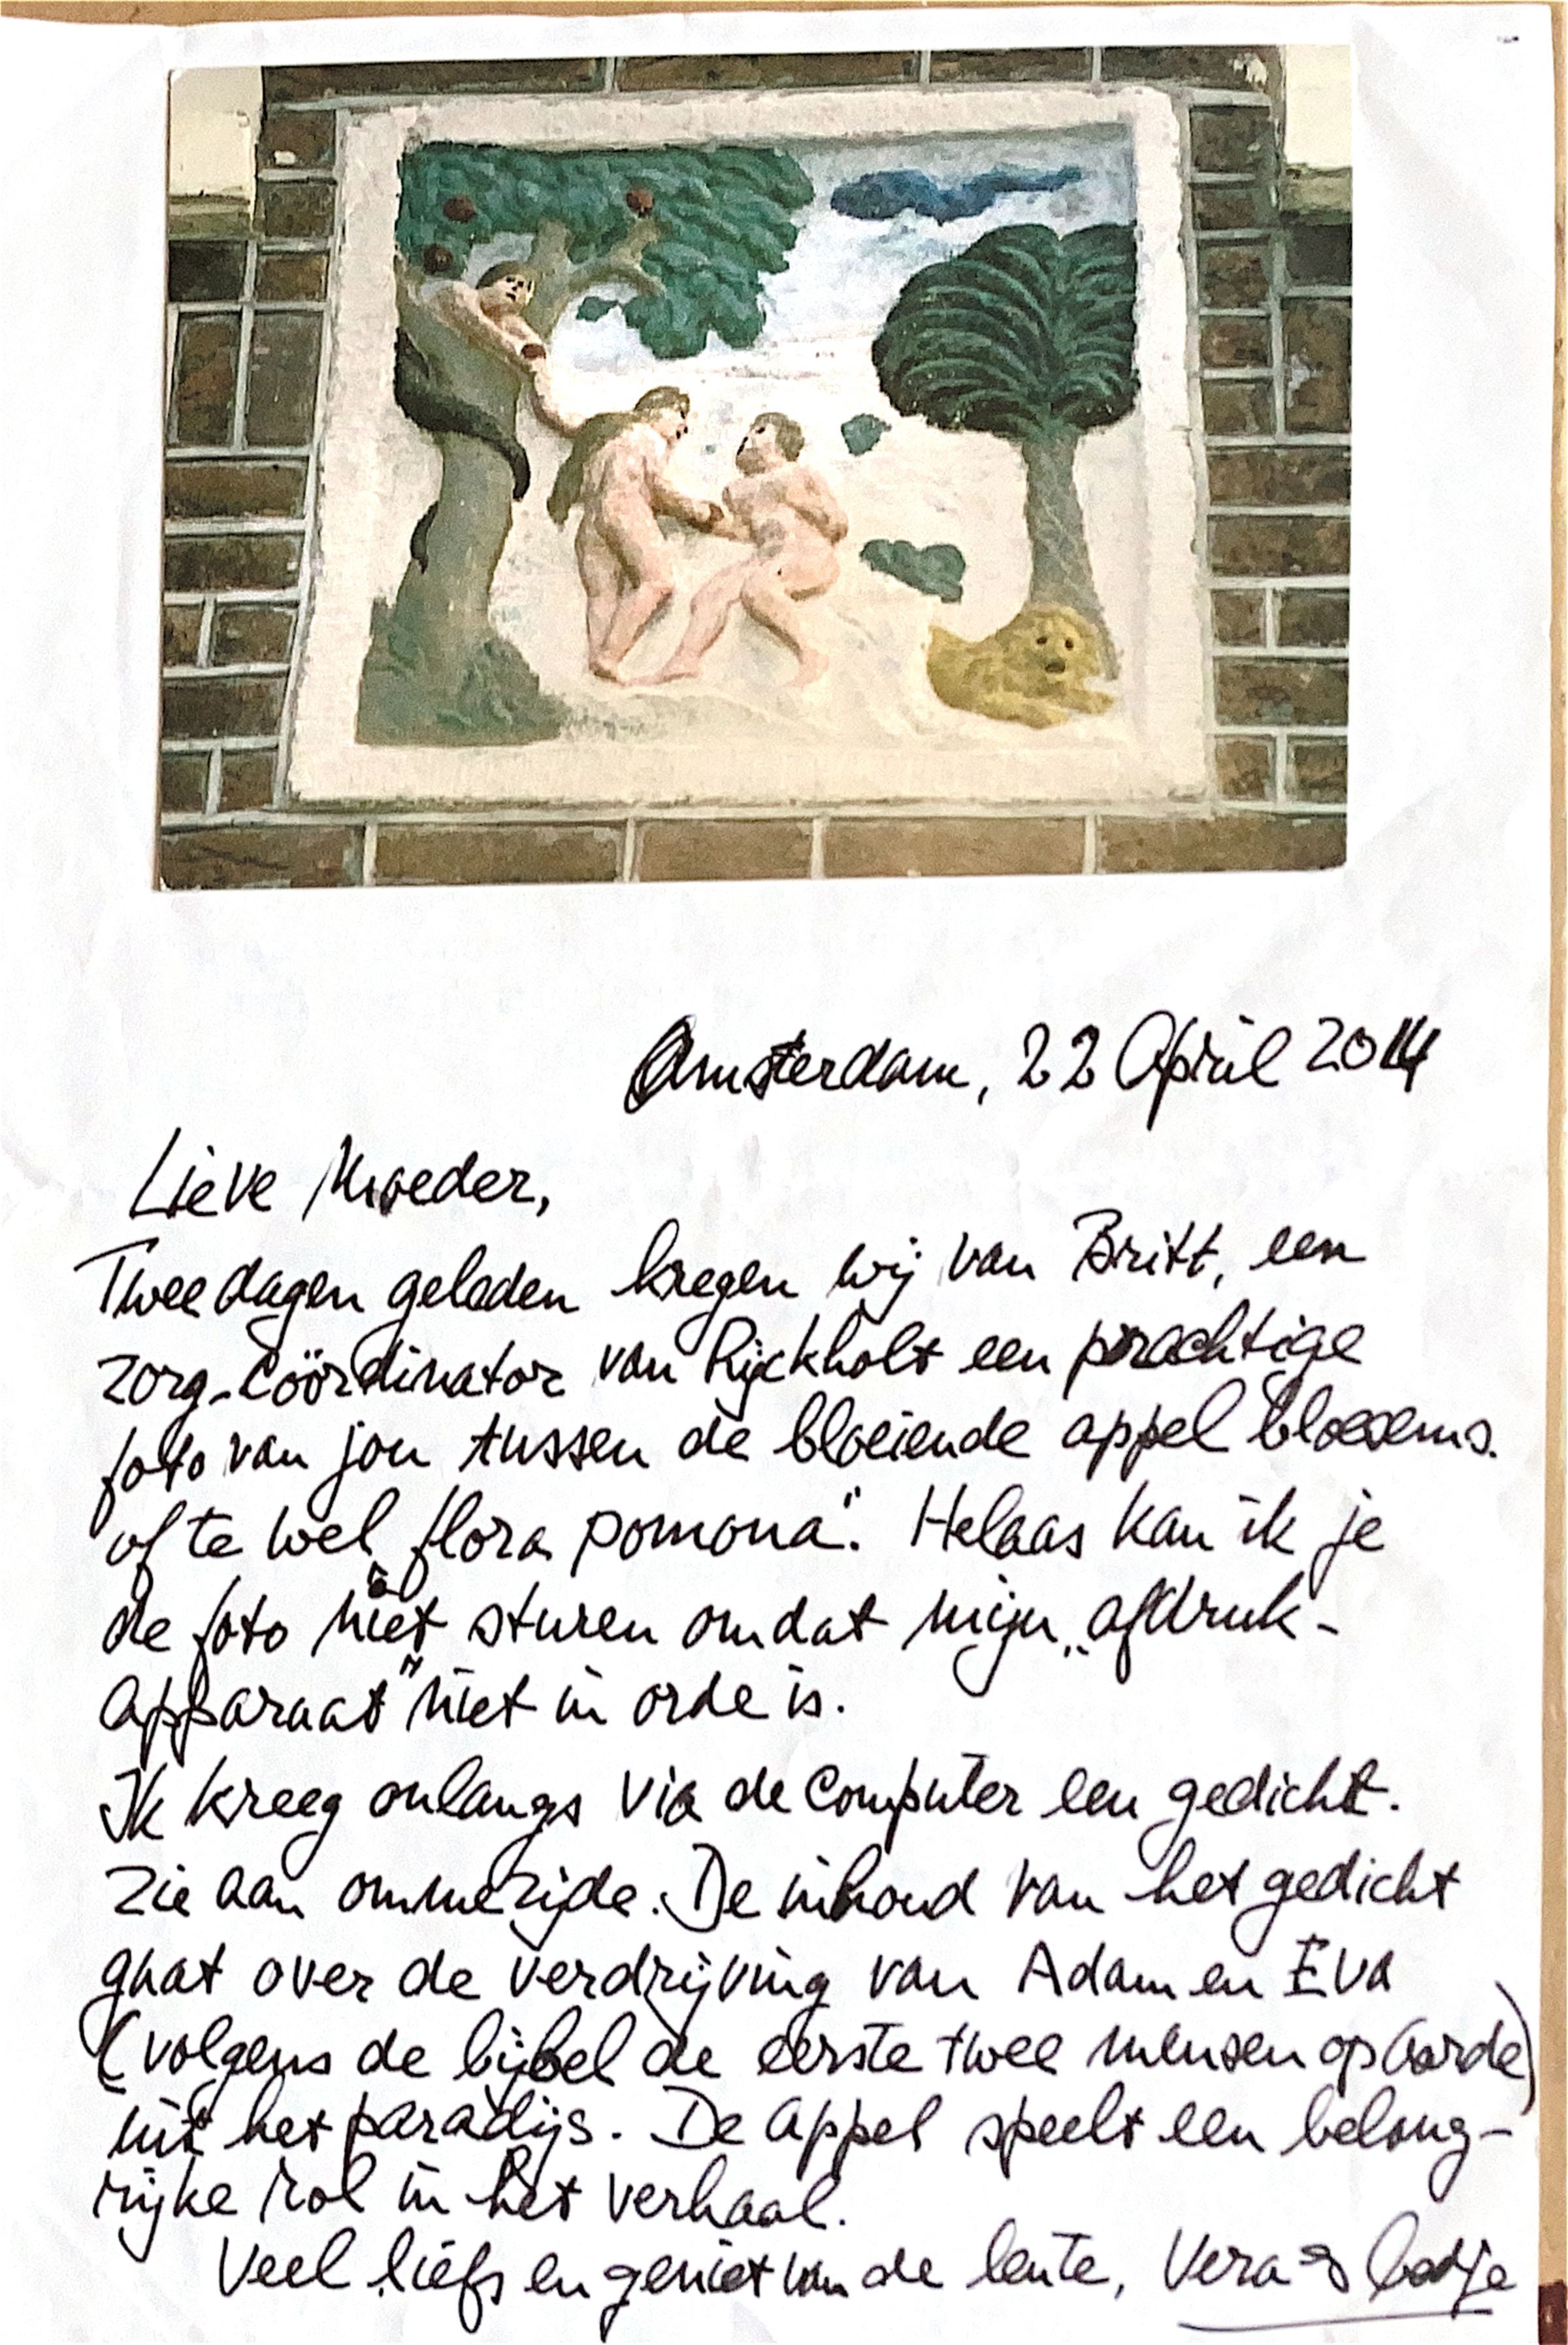 Amsterdam, 22 April 2014
Lieve Moeder,
Twee dagen geleden kregen wij van Britt, een
zorg-coördinator van Rijckholt een prachtige
foto van jou tussen de bloeiende appel bloesems.
of te wel „flora pomona”. Helaas kan ik je
de foto niet sturen omdat mijn „afdruk-
apparaat” niet in orde is.
Ik kreeg onlangs via de computer een gedicht.
Zie aan ommezijde. De inhoud van het gedicht
gaat over de verdrijving van Adam en Eva
(volgens de bijbel de eerste twee mensen op Aarde)
uit het paradijs. De appel speelt een belang-
rijke rol in het verhaal.
Veel liefs en geniet van de lente, Vera &